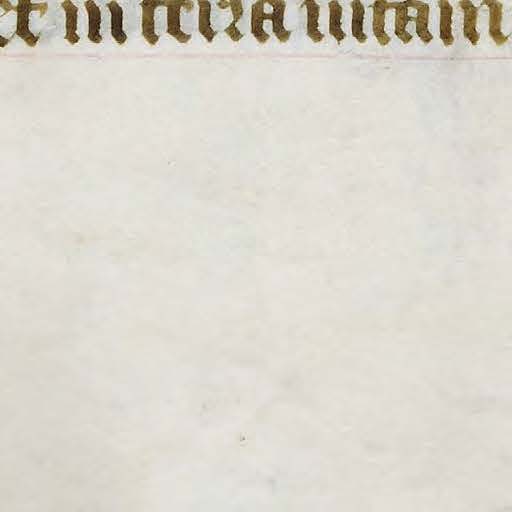 et in terra uitam